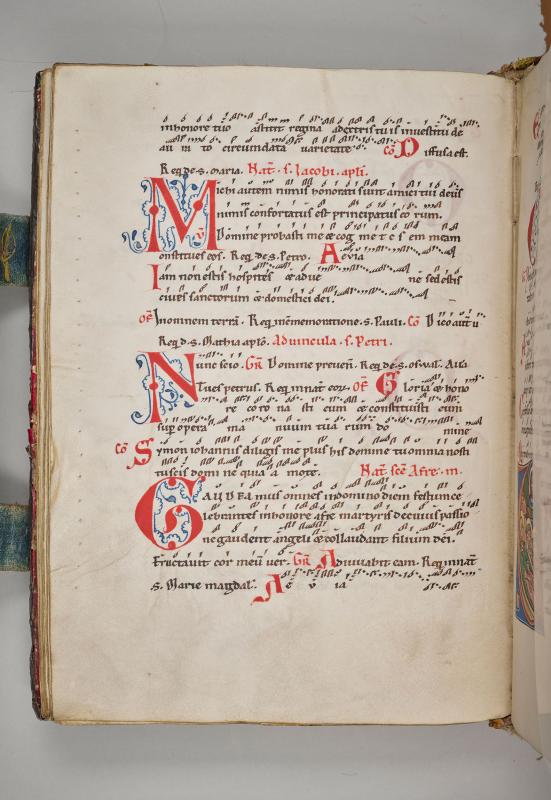 inhonore tuo astitit regina adextris tuis inuestitu de
au ra to circumdata uarietate. Cō Diffusa est.
Req. de. s. maria. Nat. s. Jacobi. apli.
Michi autem nimis honorati sunt amici tui deus
nimis confortatus est principatus eo rum.
℣ Domine probasti me & cog me t e s em meam
onstitues eos. Req. de. s. Petro. Aeuia
Iam non estis hospites & adue ne sed estis
ciues sanctorum & domestici dei.
Of Inomnem terrā. Req. in cōmemoratione. s. Pauli. Cō Dico aut u
Req. d. s. Mathia aplo. Aduincula. s. Petri.
Nunc scio. Gr̄ Domine preueni. Req. de. s. oswal. Aeuia
Tu es petrus. Req. innat. eoz. Of Gloria & hono
re coro na sti eum & constituisti eum
sup opera ma nuum tua rum do mine
Cō Symon iohannis diligis me plus his domine tu omnia nosti
tu scis domi ne quia a mo te. Nat. scē Afre. m.
GAUDEAmus omnes indomino diem festum ce
lebrantes inhonore afre martyris decuius passio
ne gaudent angeli & collaudant filium dei.
Eructauit cor meū uer. Gr̄ Adiuuabit eam. Req. innat.
s. Marie magdal. Ae u ia